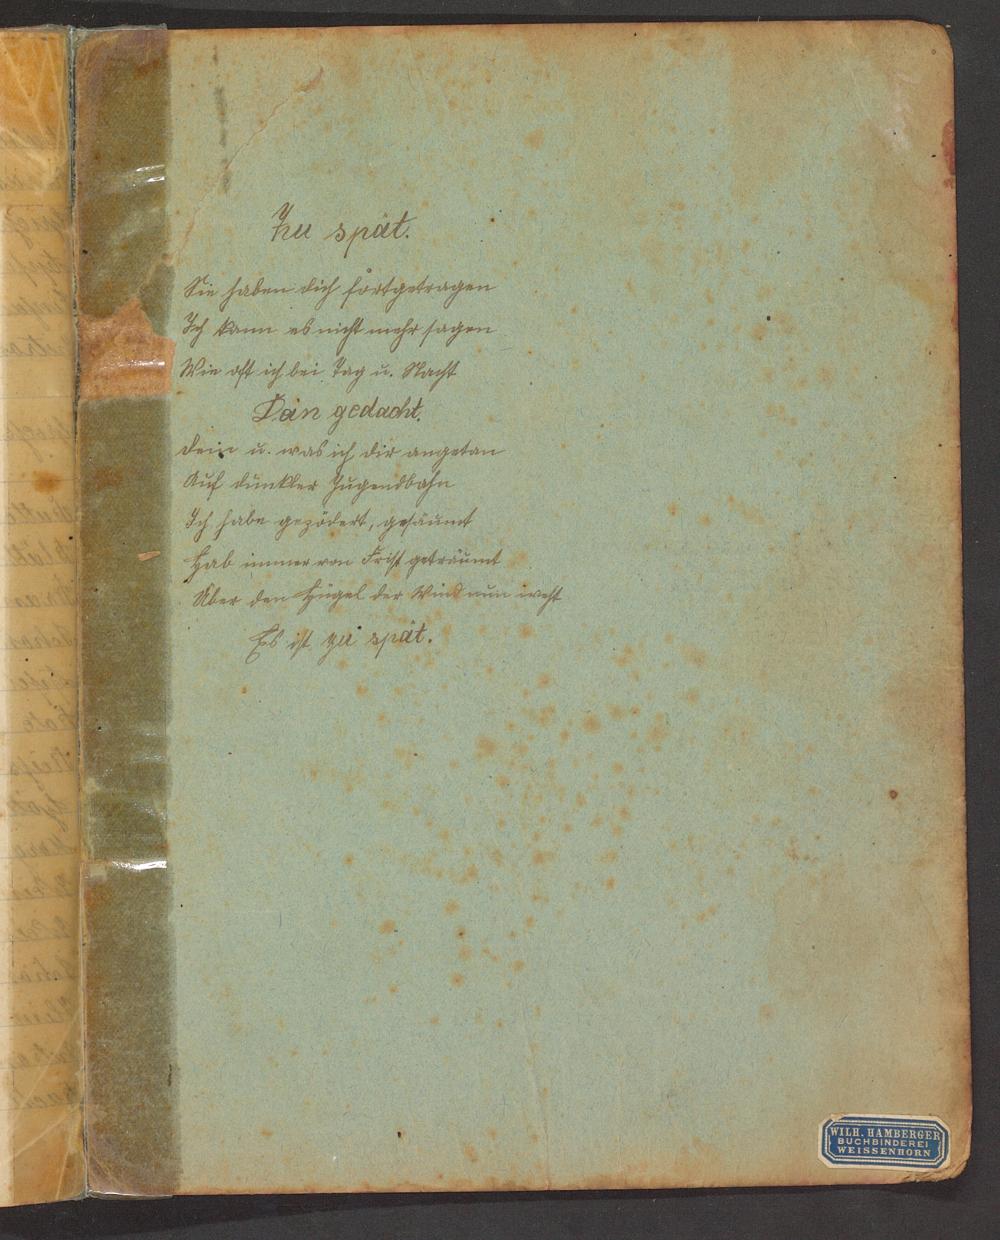 Zu spät.
Sie haben dich fortgetragen
Ich kann es nicht mehr sagen
Wie oft ich bei Tag u. Nacht
Dein gedacht.
Dein u. was ich dir angetan
Auf dunkler Jugendbahn
Ich habe gezödert, gesäumt
Hab immer von Frist geträumt
Über den Hügel der Wind nun weht
Es ist zu spät.
WILH. HAMBERGER
BUCHBINDEREI
WEISSENHORN